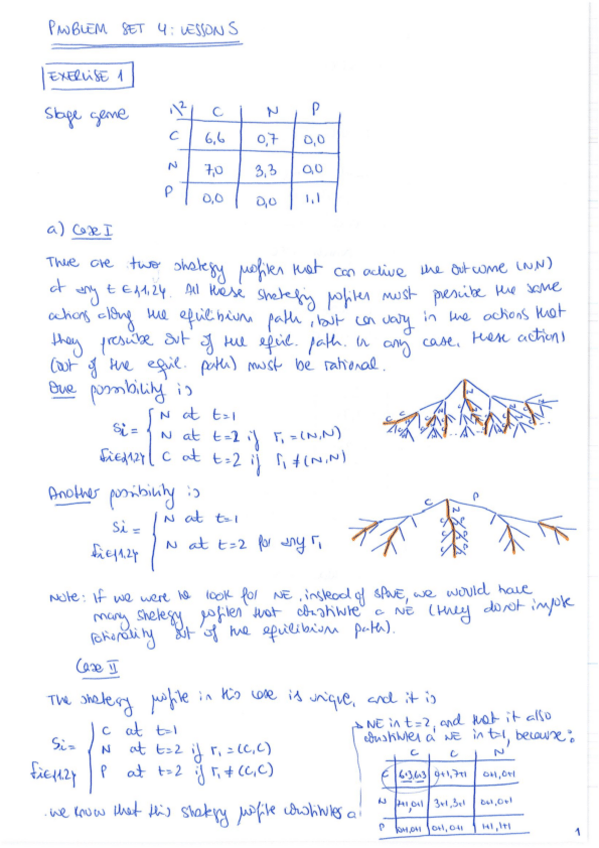 PROBLEM SET 4: LESSON 5
EXERCISE 1
Stage game
1\2 C N P
C 6,6 0,7 0,0
N 7,0 3,3 0,0
P 0,0 0,0 1,1
a) Case I
There are two strategy profiles that can achive the outcome (N,N)
at any t ∈ {1,2}. All these strategy profiles must prescribe the same
actions along the equilibrium path, but can vary in the actions that
they prescribe out of the equil. path. In any case, these actions
(out of the equil. path) must be rational.
One possibility is
N at t=1
Si = N at t=2 if r1 = (N,N)
∀i∈{1,2} C at t=2 if r1 ≠ (N,N)
Another possibility is
C P
Si = N at t=1
∀i∈{1,2} N at t=2 for any r1
Note: If we were to look for NE, instead of SPNE, we would have
many strategy profiles that constitute a NE (they do not
rationality out of the equilibrium path).
Case II
The strategy profile in this case is unique, and it is
C at t=1
Si = N at t=2 if r1 = (C,C)
∀i∈{1,2} P at t=2 if r1 ≠ (C,C)
we know that this strategy profile constitutes a
NE in t=2, and that it also
constitutes a NE in t=1, because:
C C N
C 6+3,6+3 0+1,7+1 0+1,0+1
N 7+1,0+1 3+1,3+1 0+1,0+1
P 0+1,0+1 0+1,0+1 1+1,1+1
1